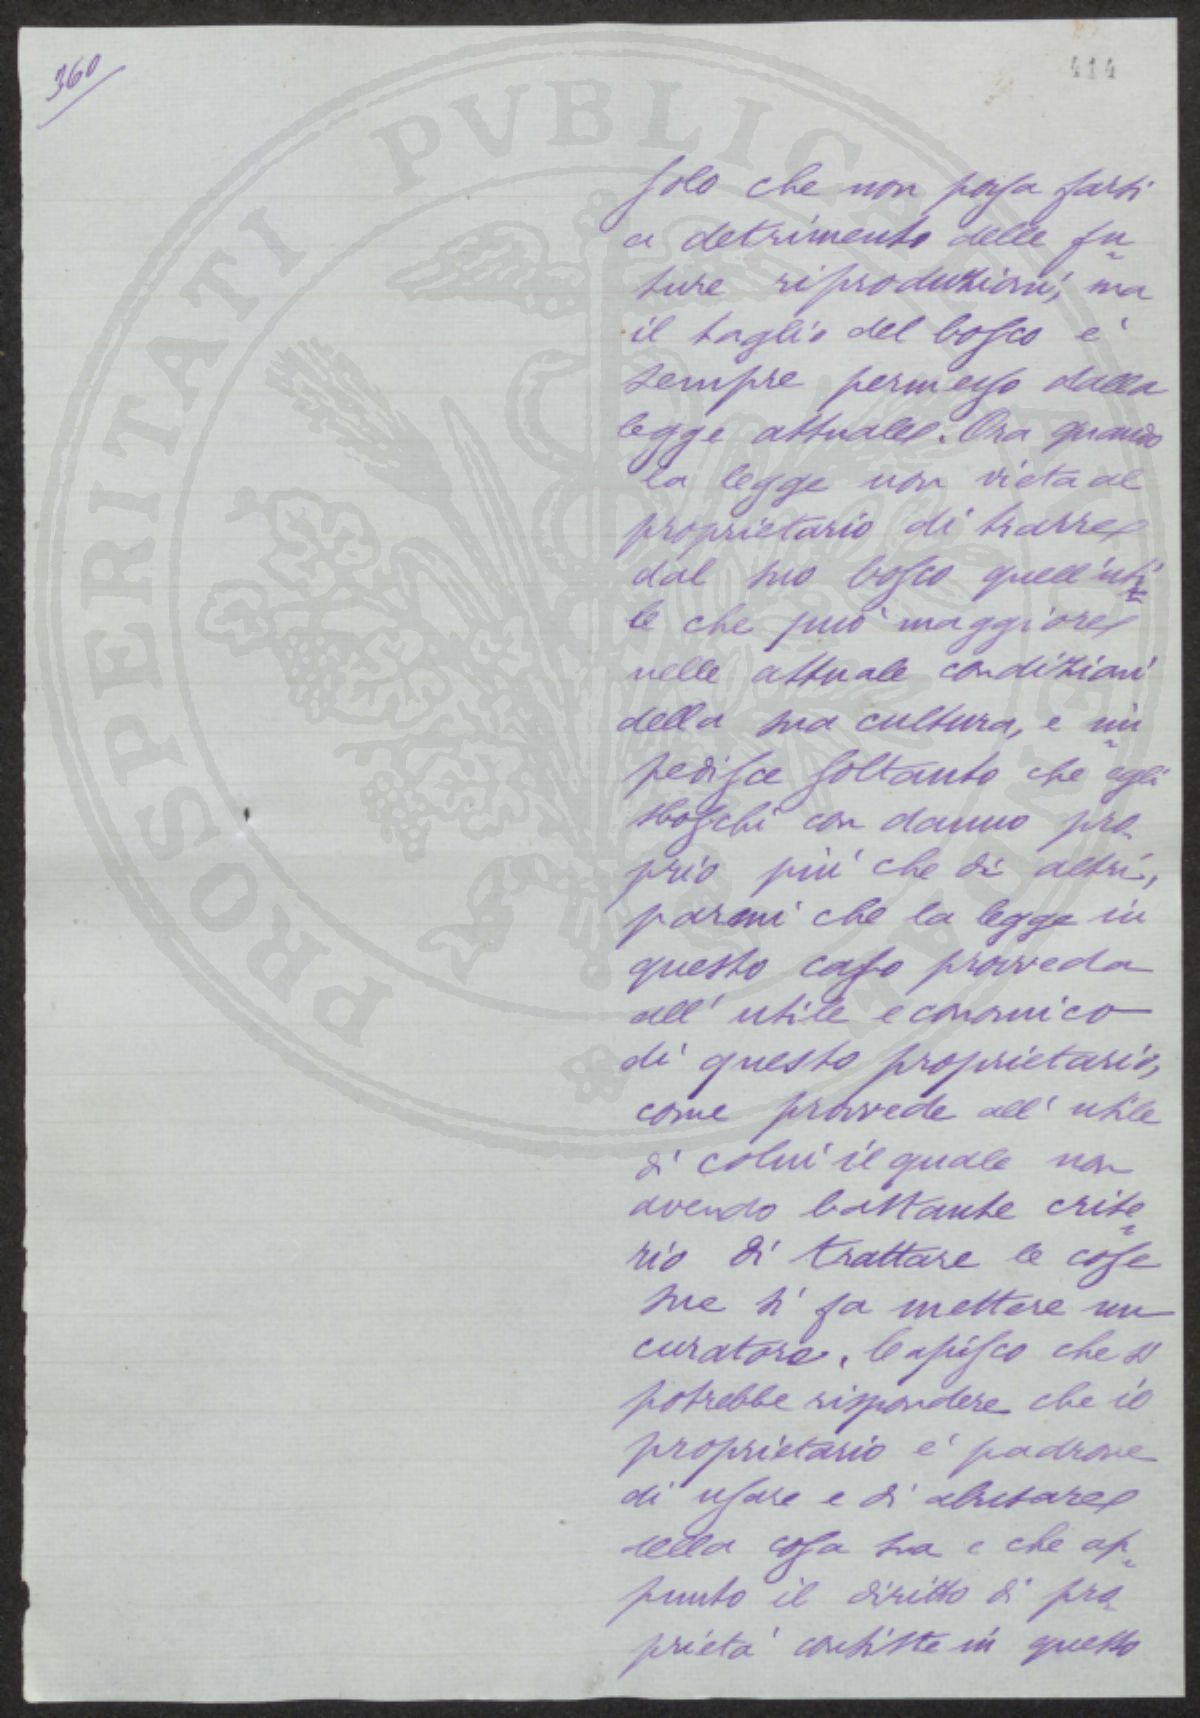 360
414
PROSPERITATI PVBLICAE
solo che non possa farsi
a detrimento delle fu
ture riproduzioni, ma
il taglio del bosco è
sempre permesso dalla
legge attuale. Ora quando
la legge non vieta al
proprietario di trarre
dal suo bosco quell'uti
le che può maggiore
nelle attuale condizioni
della sua cultura, e im
pedisce soltanto che egli
sboschi con danno pro
prio più che di altri,
parmi che la legge in
questo caso provveda
all'utile economico
di questo proprietario,
come provvede all'utile
di colui il quale non
avendo bastante crite
rio di trattare le cose
sue si fa mettere un
curatore. Capisco che si
potrebbe rispondere che il
proprietario è padrone
di usare e di abusare
della cosa sua e che ap
punto il diritto di pro
prietà consiste in questo